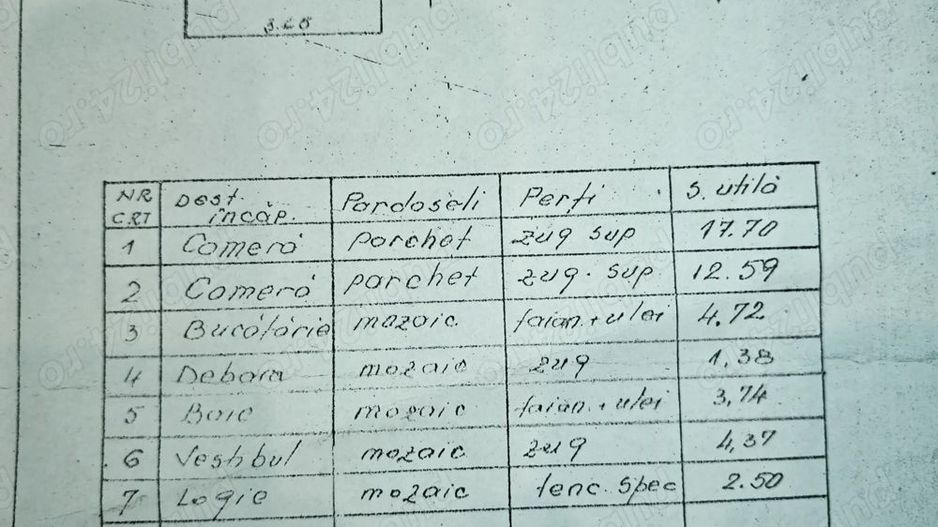 3.20
NR CRT Dest. încăp. Pardoseli Perți S. utilă
1 Cameră parchet zug sup 17.70
2 Cameră parchet zug. sup 12.59
3 Bucătărie mozaic faian.+ulei 4.72
4 Debara mozaic zug 1,38
5 Baie mozaic faian.+ulei 3,74
6 Veshbul mozaic zug 4,37
7 Logie mozaic tenc. spec 2.50
publi24.ro